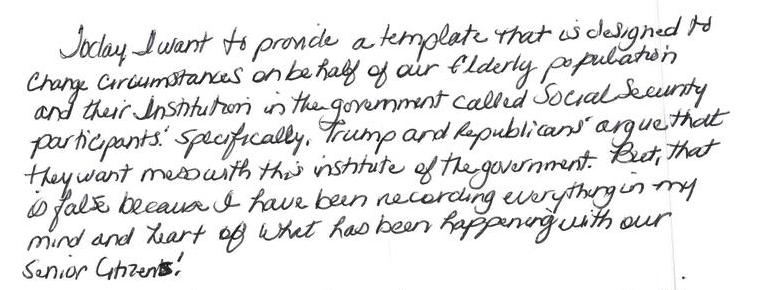 Today I want to provide a template that is designed to
Change Circumstances on behalf of our Elderly population
and their Institution in the government called Social Security
participants! Specifically, Trump and Republicans' argue that
they want mess with this institute of the government. But, that
is false because I have been recording everything in my
mind and heart of what has been happening with our
Senior Citizens!